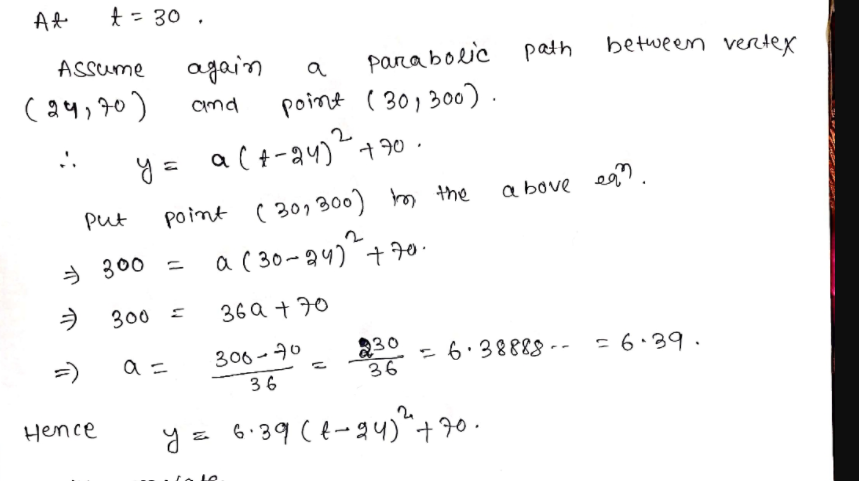 At t = 30 .
Assume again a parabolic path between vertex
(24, 70) and point (30, 300) .
∴ y = a(t-24)² + 70 .
Put point (30, 300) in the above eqn.
⇒ 300 = a(30-24)² + 70.
⇒ 300 = 36a + 70
⇒ a = (300-70)/36 = 230/36 = 6.38888.. = 6.39 .
Hence y = 6.39 (t-24)² + 70 .